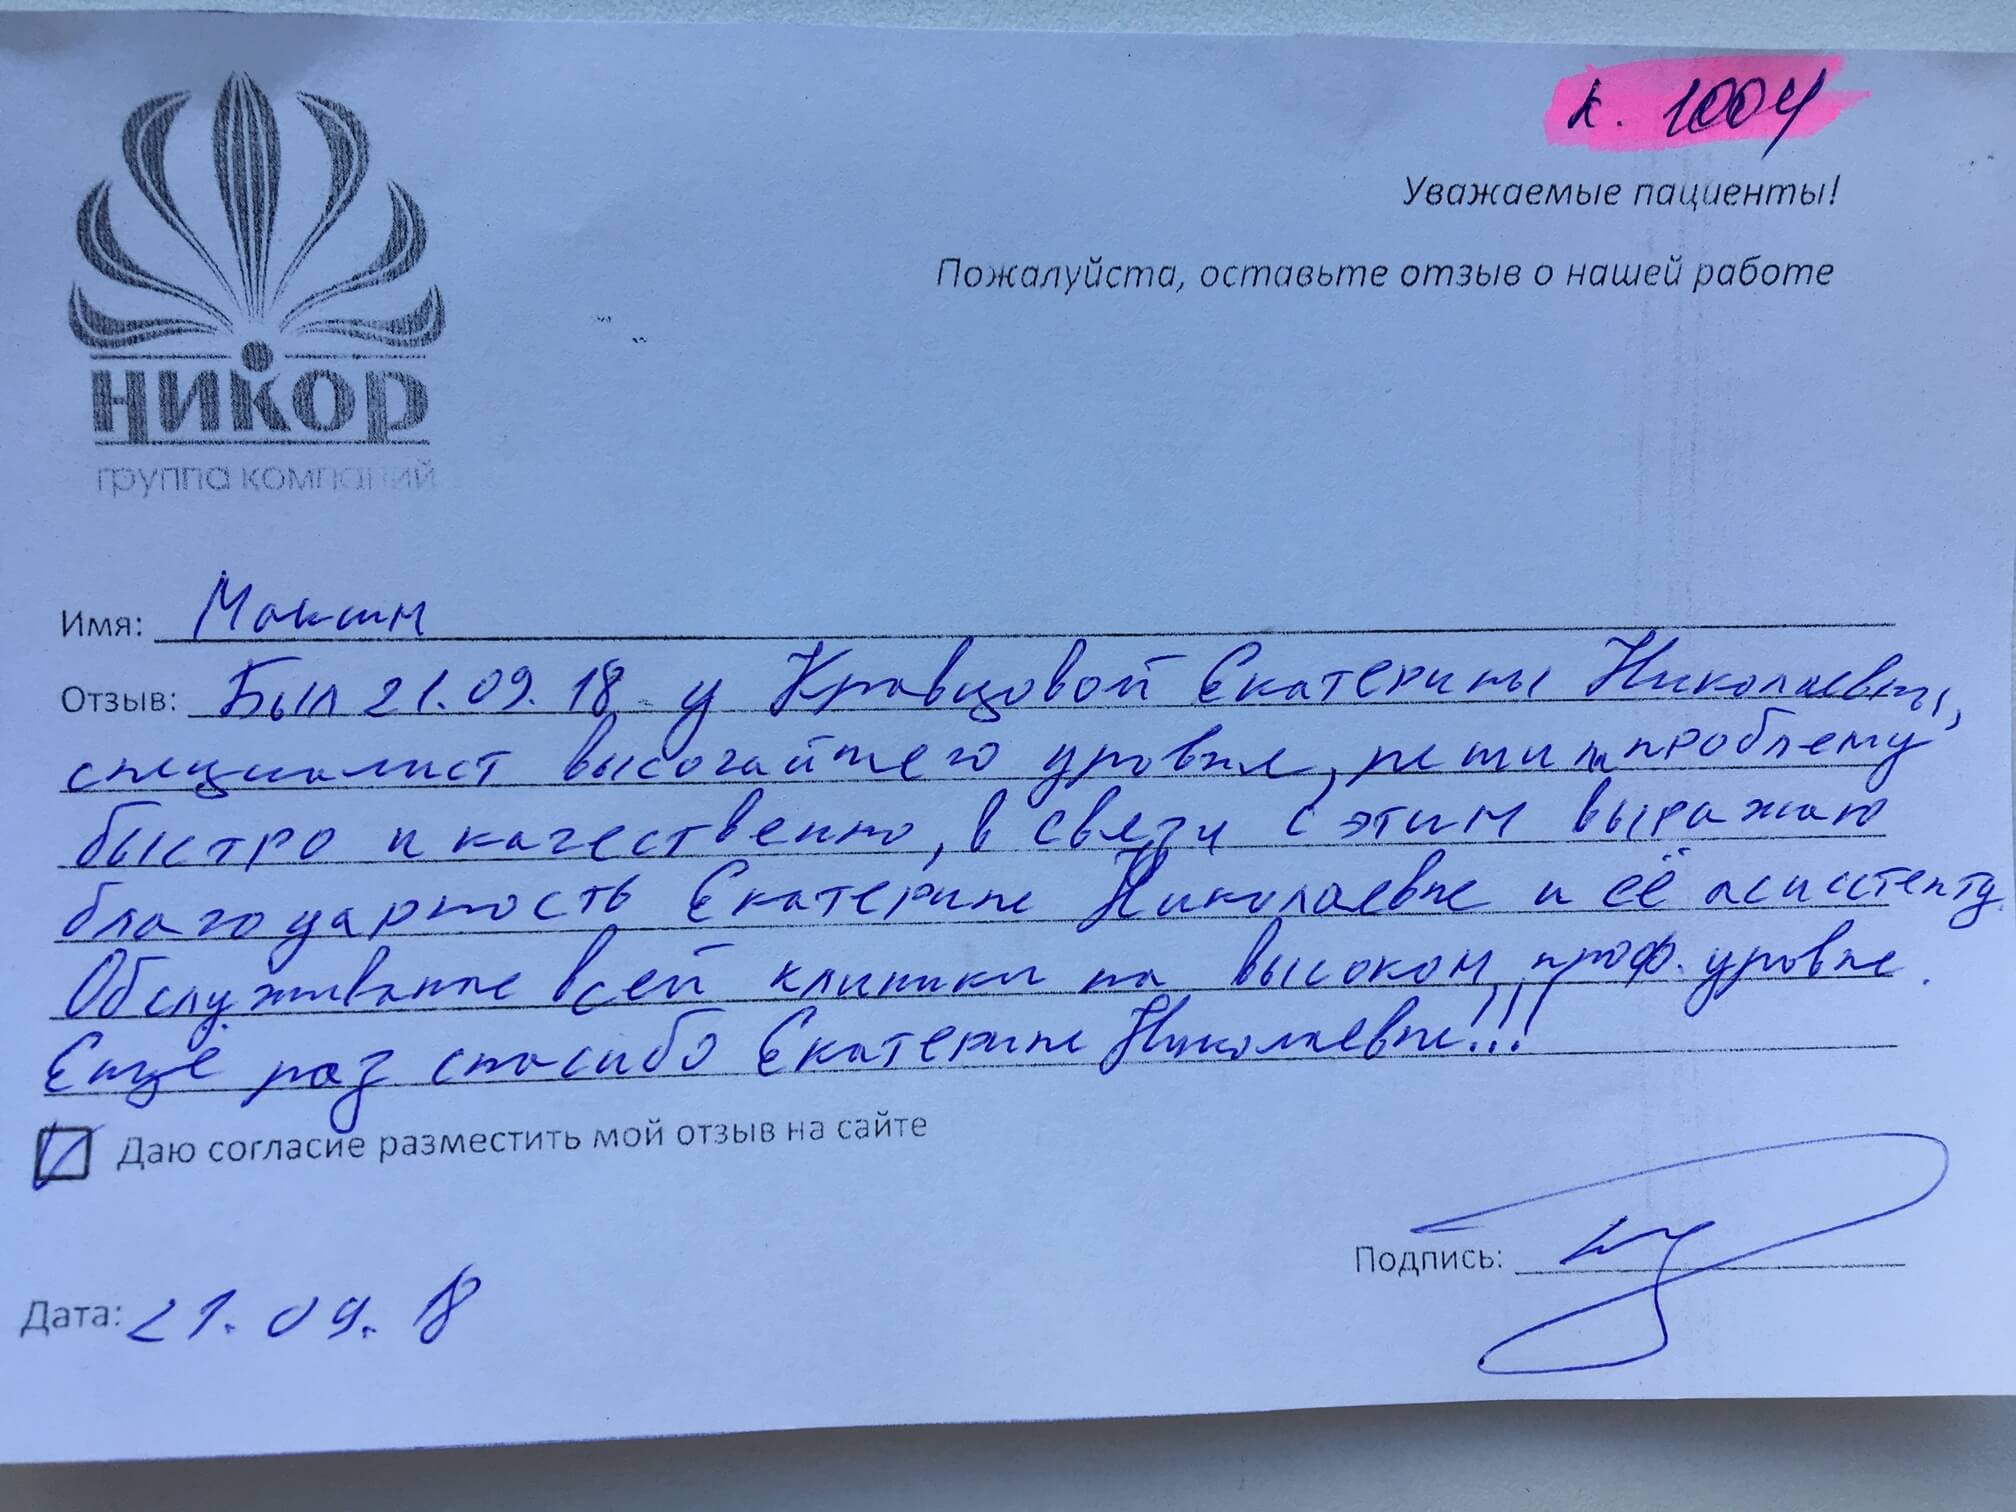 к. 1004
Уважаемые пациенты!
Пожалуйста, оставьте отзыв о нашей работе
никор
группа компаний
Имя: Максим
Отзыв: Был 21.09.18 у Кравцовой Екатерины Николаевны,
специалист высочайшего уровня, решили проблему
быстро и качественно, в связи с этим выражаю
благодарность Екатерине Николаевне и её асисстенту.
Обслуживание всей клиники на высоком проф. уровне.
Ещё раз спасибо Екатерине Николаевне!!!
Даю согласие разместить мой отзыв на сайте
Подпись:
Дата: 21.09.18